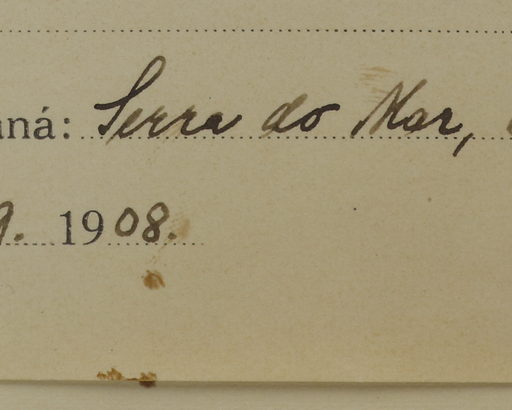 aná: Serra do Mar,
9. 1908.